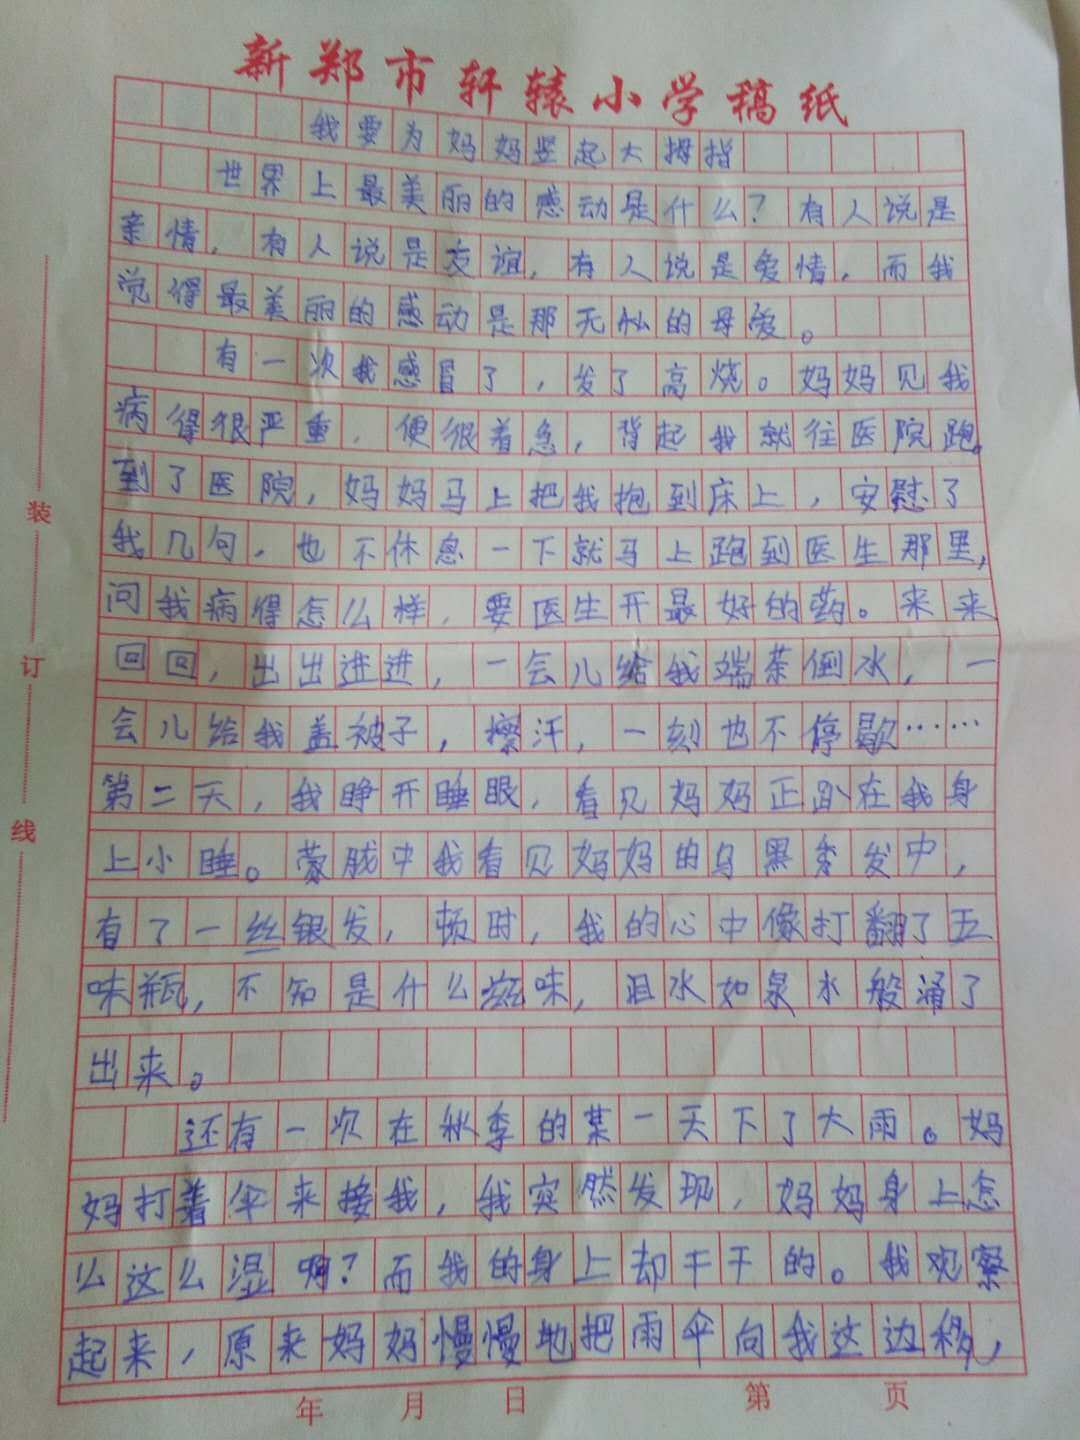 新郑市轩辕小学稿纸
我要为妈妈竖起大拇指
世界上最美丽的感动是什么?有人说是
亲情,有人说是友谊,有人说是爱情,而我
觉得最美丽的感动是那无私的母爱。
有一次我感冒了,发了高烧。妈妈见我
病得很严重,便很着急,背起我就往医院跑。
到了医院,妈妈马上把我抱到床上,安慰了
我几句,也不休息一下就马上跑到医生那里,
问我病得怎么样,要医生开最好的药。来来
回回,出出进进,一会儿给我端茶倒水,一
会儿给我盖被子,擦汗,一刻也不停歇……
第二天,我睁开睡眼,看见妈妈正趴在我身
上小睡。蒙胧中我看见妈妈的乌黑秀发中,
有了一丝银发,顿时,我的心中像打翻了五
味瓶,不知是什么滋味,泪水如泉水般涌了
出来。
还有一次在秋季的某一天下了大雨。妈
妈打着伞来接我,我突然发现,妈妈身上怎
么这么湿啊?而我的身上却干干的。我观察
起来,原来妈妈慢慢地把雨伞向我这边移,
年 月 日 第 页
装
订
线